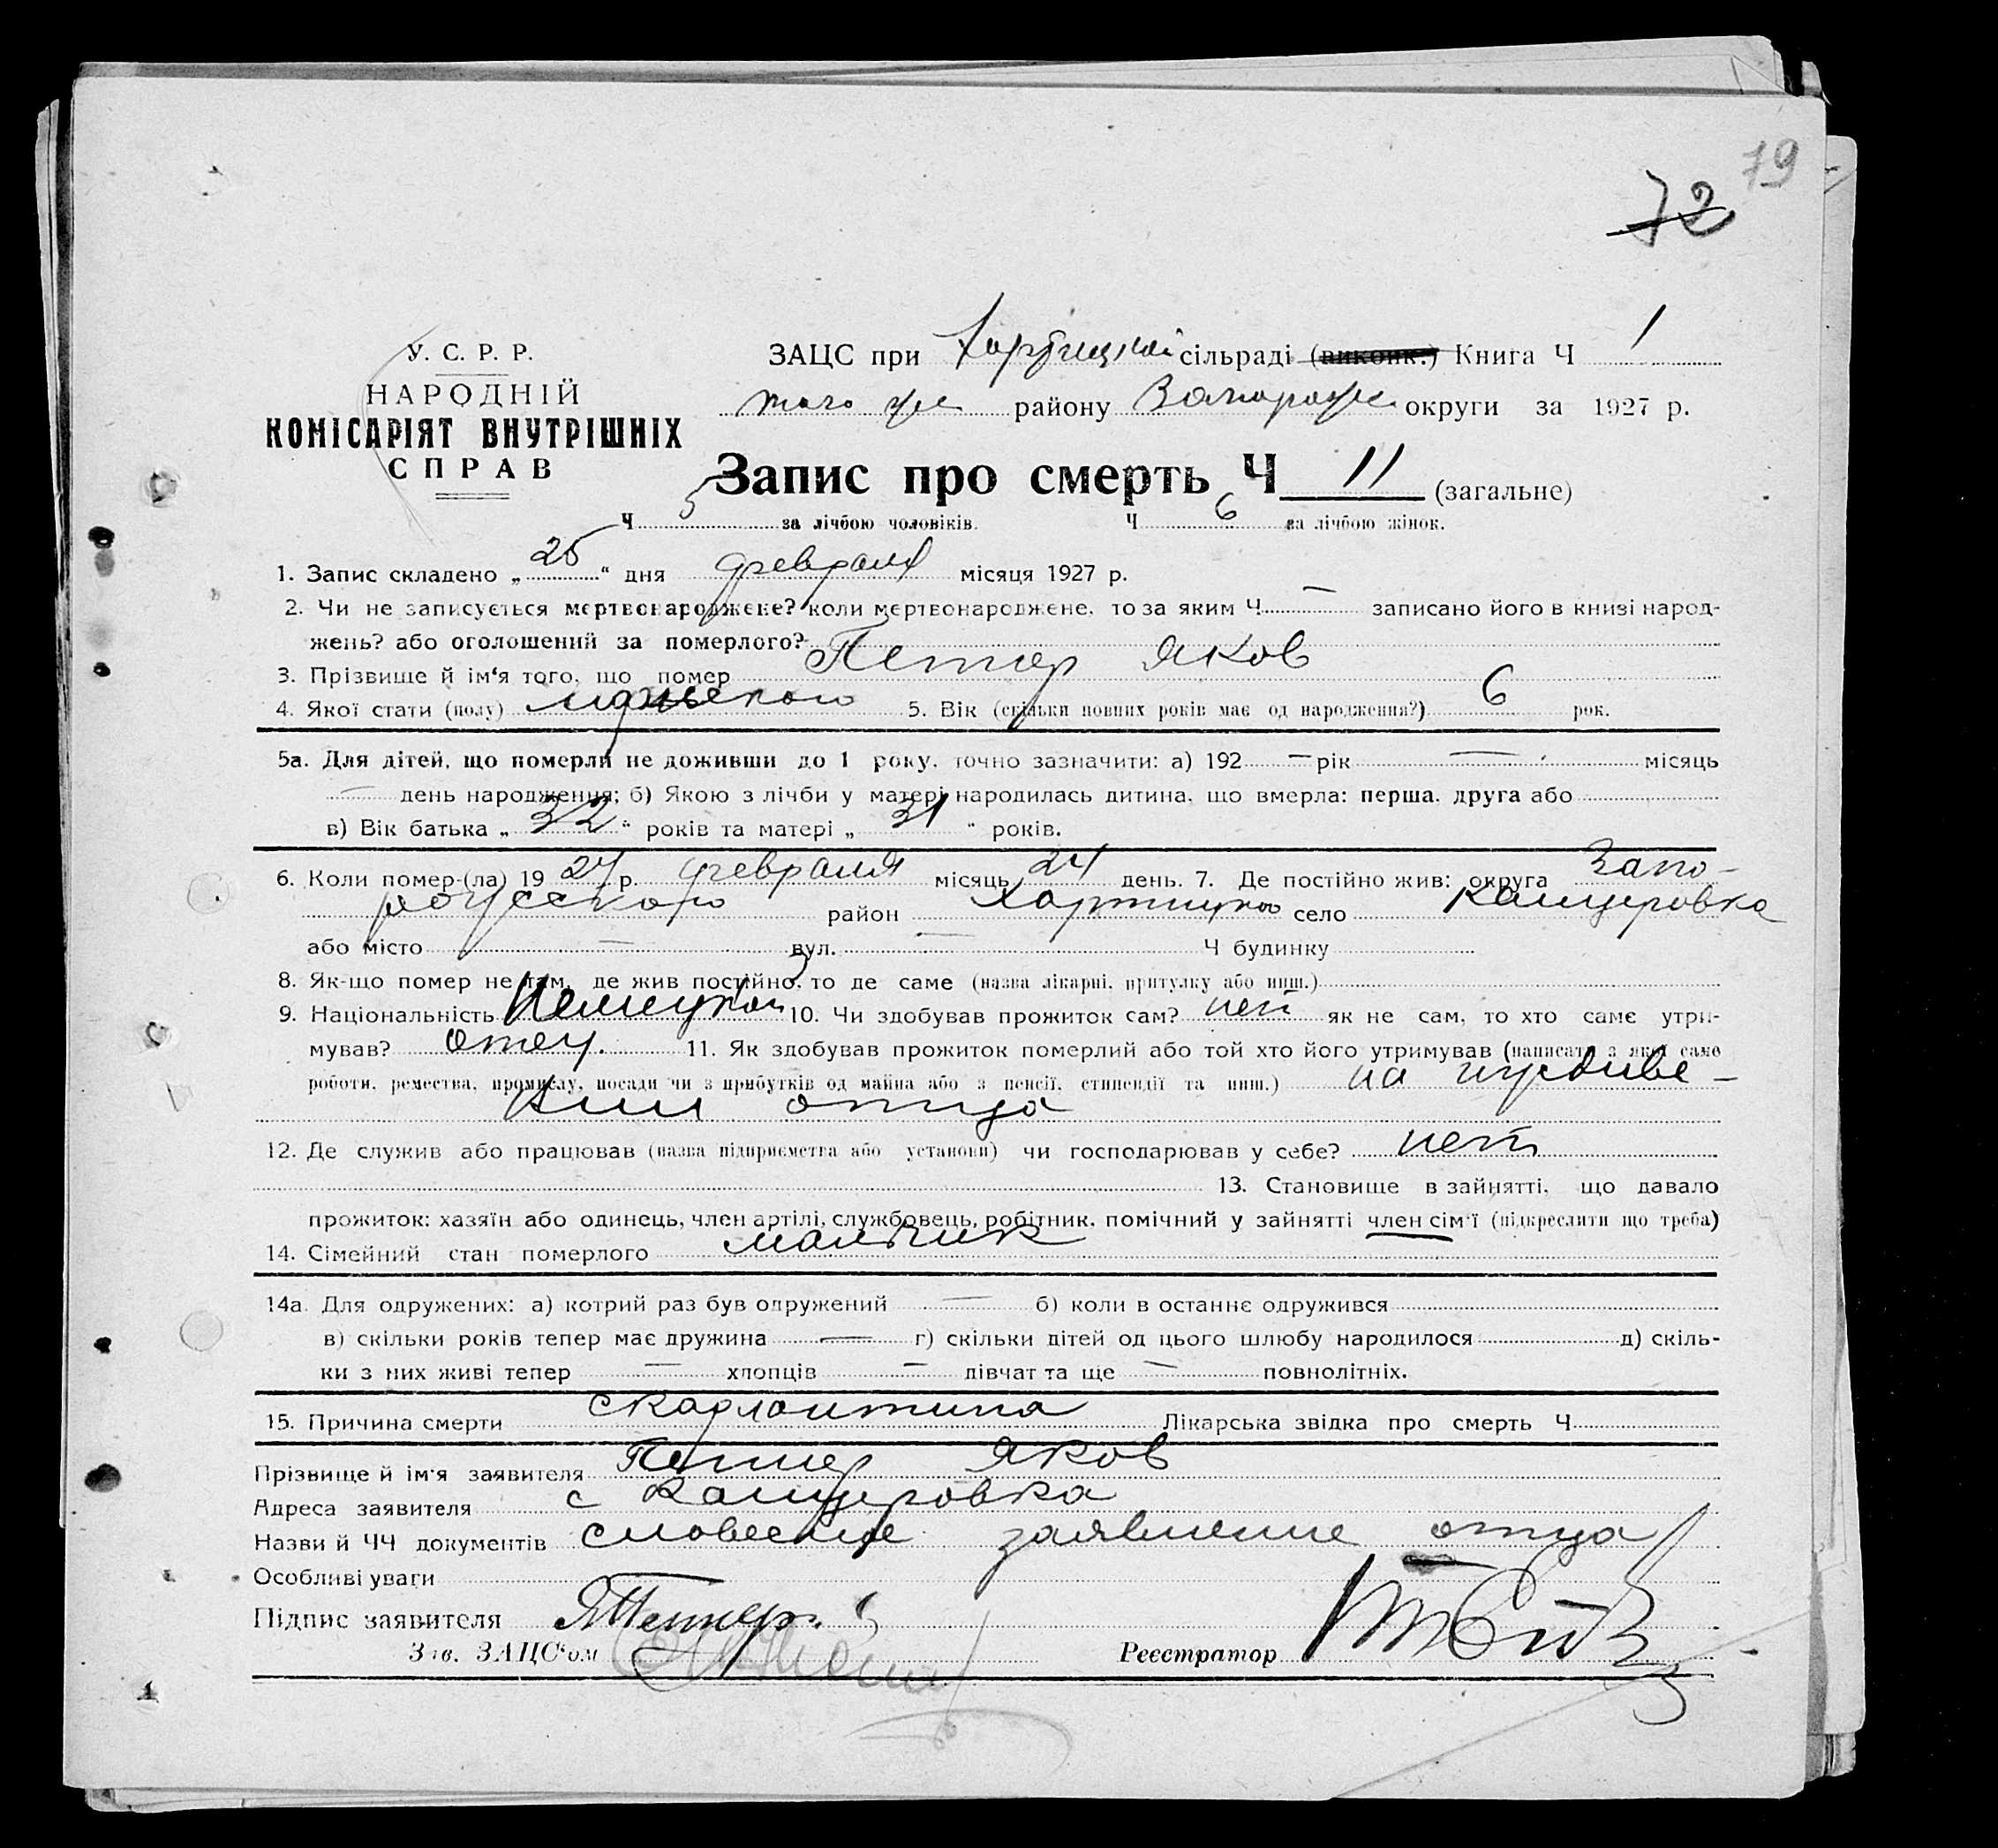 79
72
У. С. Р. Р.
НАРОДНІЙ
КОМІСАРІЯТ ВНУТРІШНІХ
СПРАВ
ЗАЦС при Хортицкой сільраді (виконк.) Книга Ч 1
того же району Запорож. округи за 1927 р.
Запис про смерть Ч 11 (загальне)
Ч 5 за лічбою чоловіків. Ч 6 за лічбою жінок.
1. Запис складено „ 25 “ дня февраля місяця 1927 р.
2. Чи не записується мертвонароджене? коли мертвонароджене, то за яким Ч — записано його в книзі народ-
жень? або оголошений за померлого?
3. Прізвище й ім'я того, що помер Петкер Яков
4. Якої стати (полу) мужского 5. Вік (скільки повних років має од народження?) 6 рок.
5а. Для дітей, що померли не доживши до 1 року, точно зазначити: а) 192 — рік — місяць
— день народження; б) Якою з лічби у матері народилась дитина, що вмерла: перша, друга або
в) Вік батька „ 32 “ років та матері „ 31 “ років.
6. Коли помер-(ла) 19 27 р. февраля місяць 24 день. 7. Де постійно жив: округа Запо-
рожского район Хортицкого село Канцеровка
або місто — вул. — Ч будинку
8. Як-що помер не там, де жив постійно, то де саме (назва лікарні, притулку або инш.)
9. Національність Немецкой 10. Чи здобував прожиток сам? нет як не сам, то хто саме утри-
мував? отец. 11. Як здобував прожиток померлий або той хто його утримував (написати з якої саме
роботи, ремества, промислу, посади чи з прибутків од майна або з пенсії, стипендії та инш.) на иждиве-
нии отца
12. Де служив або працював (назва підприємства або установи) чи господарював у себе? нет
13. Становище в зайнятті, що давало
прожиток: хазяїн або одинець, член артілі, службовець, робітник, помічний у зайнятті член сім'ї (підкреслити що треба)
14. Сімейний стан померлого мальчик
14а. Для одружених: а) котрий раз був одружений — б) коли в останнє одружився
в) скільки років тепер має дружина — г) скільки дітей од цього шлюбу народилося д) скіль-
ки з них живі тепер — хлопців — дівчат та ще — повнолітніх.
15. Причина смерти скарлатина Лікарська звідка про смерть Ч
Прізвище й ім'я заявителя Петкер Яков
Адреса заявителя с Канцеровка
Назви й ЧЧ документів словесное заявление отца
Особливі уваги
Підпис заявителя Я Петкер.
Зав. ЗАЦС'ом
Реєстратор